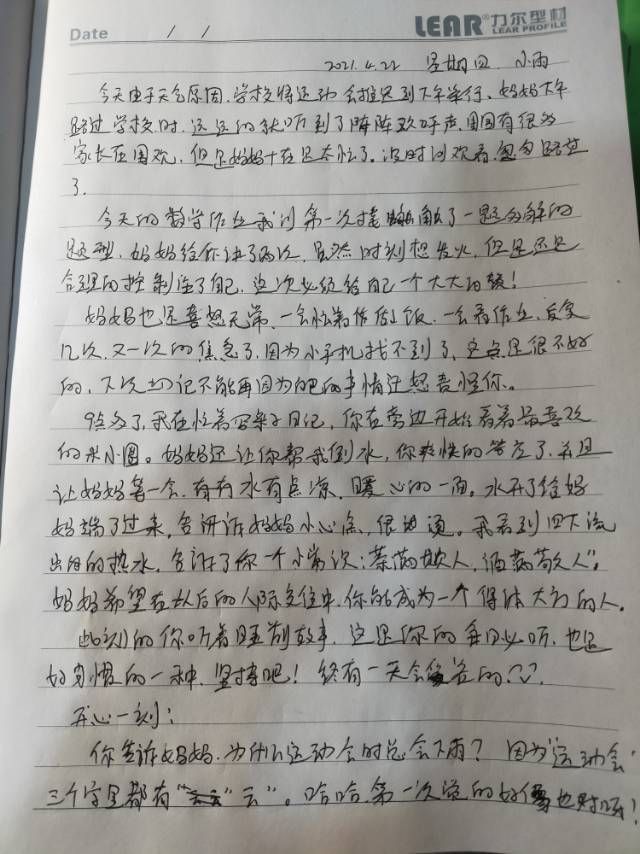 Date / /
LEAR® 力尔型材
LEAR PROFILE
2021.4.22 星期四 小雨
今天由于天气原因,学校将运动会推迟到下午举行,妈妈下午
路过学校时,远远的就听到了阵阵欢呼声,周围有很多
家长在围观,但是妈妈实在是太忙了,没时间观看,匆匆路过
了.
今天的数学作业我们第一次接触了一题分解的
题型,妈妈给你讲了两次,虽然时刻想发火,但是还是
合理的控制住了自己,这次必须给自己一个大大的赞!
妈妈也是喜怒无常,一会忙着作饭,一会看作业,反复
几次,又一次的焦急了,因为小手机找不到了,这点是很不好
的,下次切记不能再因为自己的事情迁怒责怪你。
9点多了,我在忙着写亲子日记,你在旁边开始看着最喜欢
的米小圈。妈妈还让你帮我倒水,你爽快的答应了,并且
让妈妈等一会,看看水有点凉,暖心的一面。水开了给妈
妈端了过来,告诉妈妈小心点,很烫。我看到四处流
出的热水,告诉了你一个小常识:茶满欺人,酒满敬人"。
妈妈希望在以后的人际交往中,你能成为一个得体大方的人。
此刻的你听着睡前故事,这是你的每日必听,也是
好习惯的一种,坚持吧!终有一天会的.
开心一刻:
你告诉妈妈,为什么运动会时总会下雨?因为"运动会"
三个字里都有"云"。哈哈,第一次说的好像也对呀!